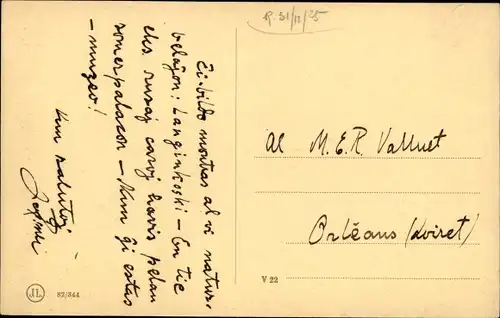 R. 31/12/25
Ĉi-bildo montras al vi natur-
belaĵon: Langinkoski – En tie
eks rusaj caroj havis
somerpalacon – Nun ĝi estas
– muzeo!
Kun salutoj
al M. E. R. Valluet
Orléans (Loiret)
JL
82/344
V 22